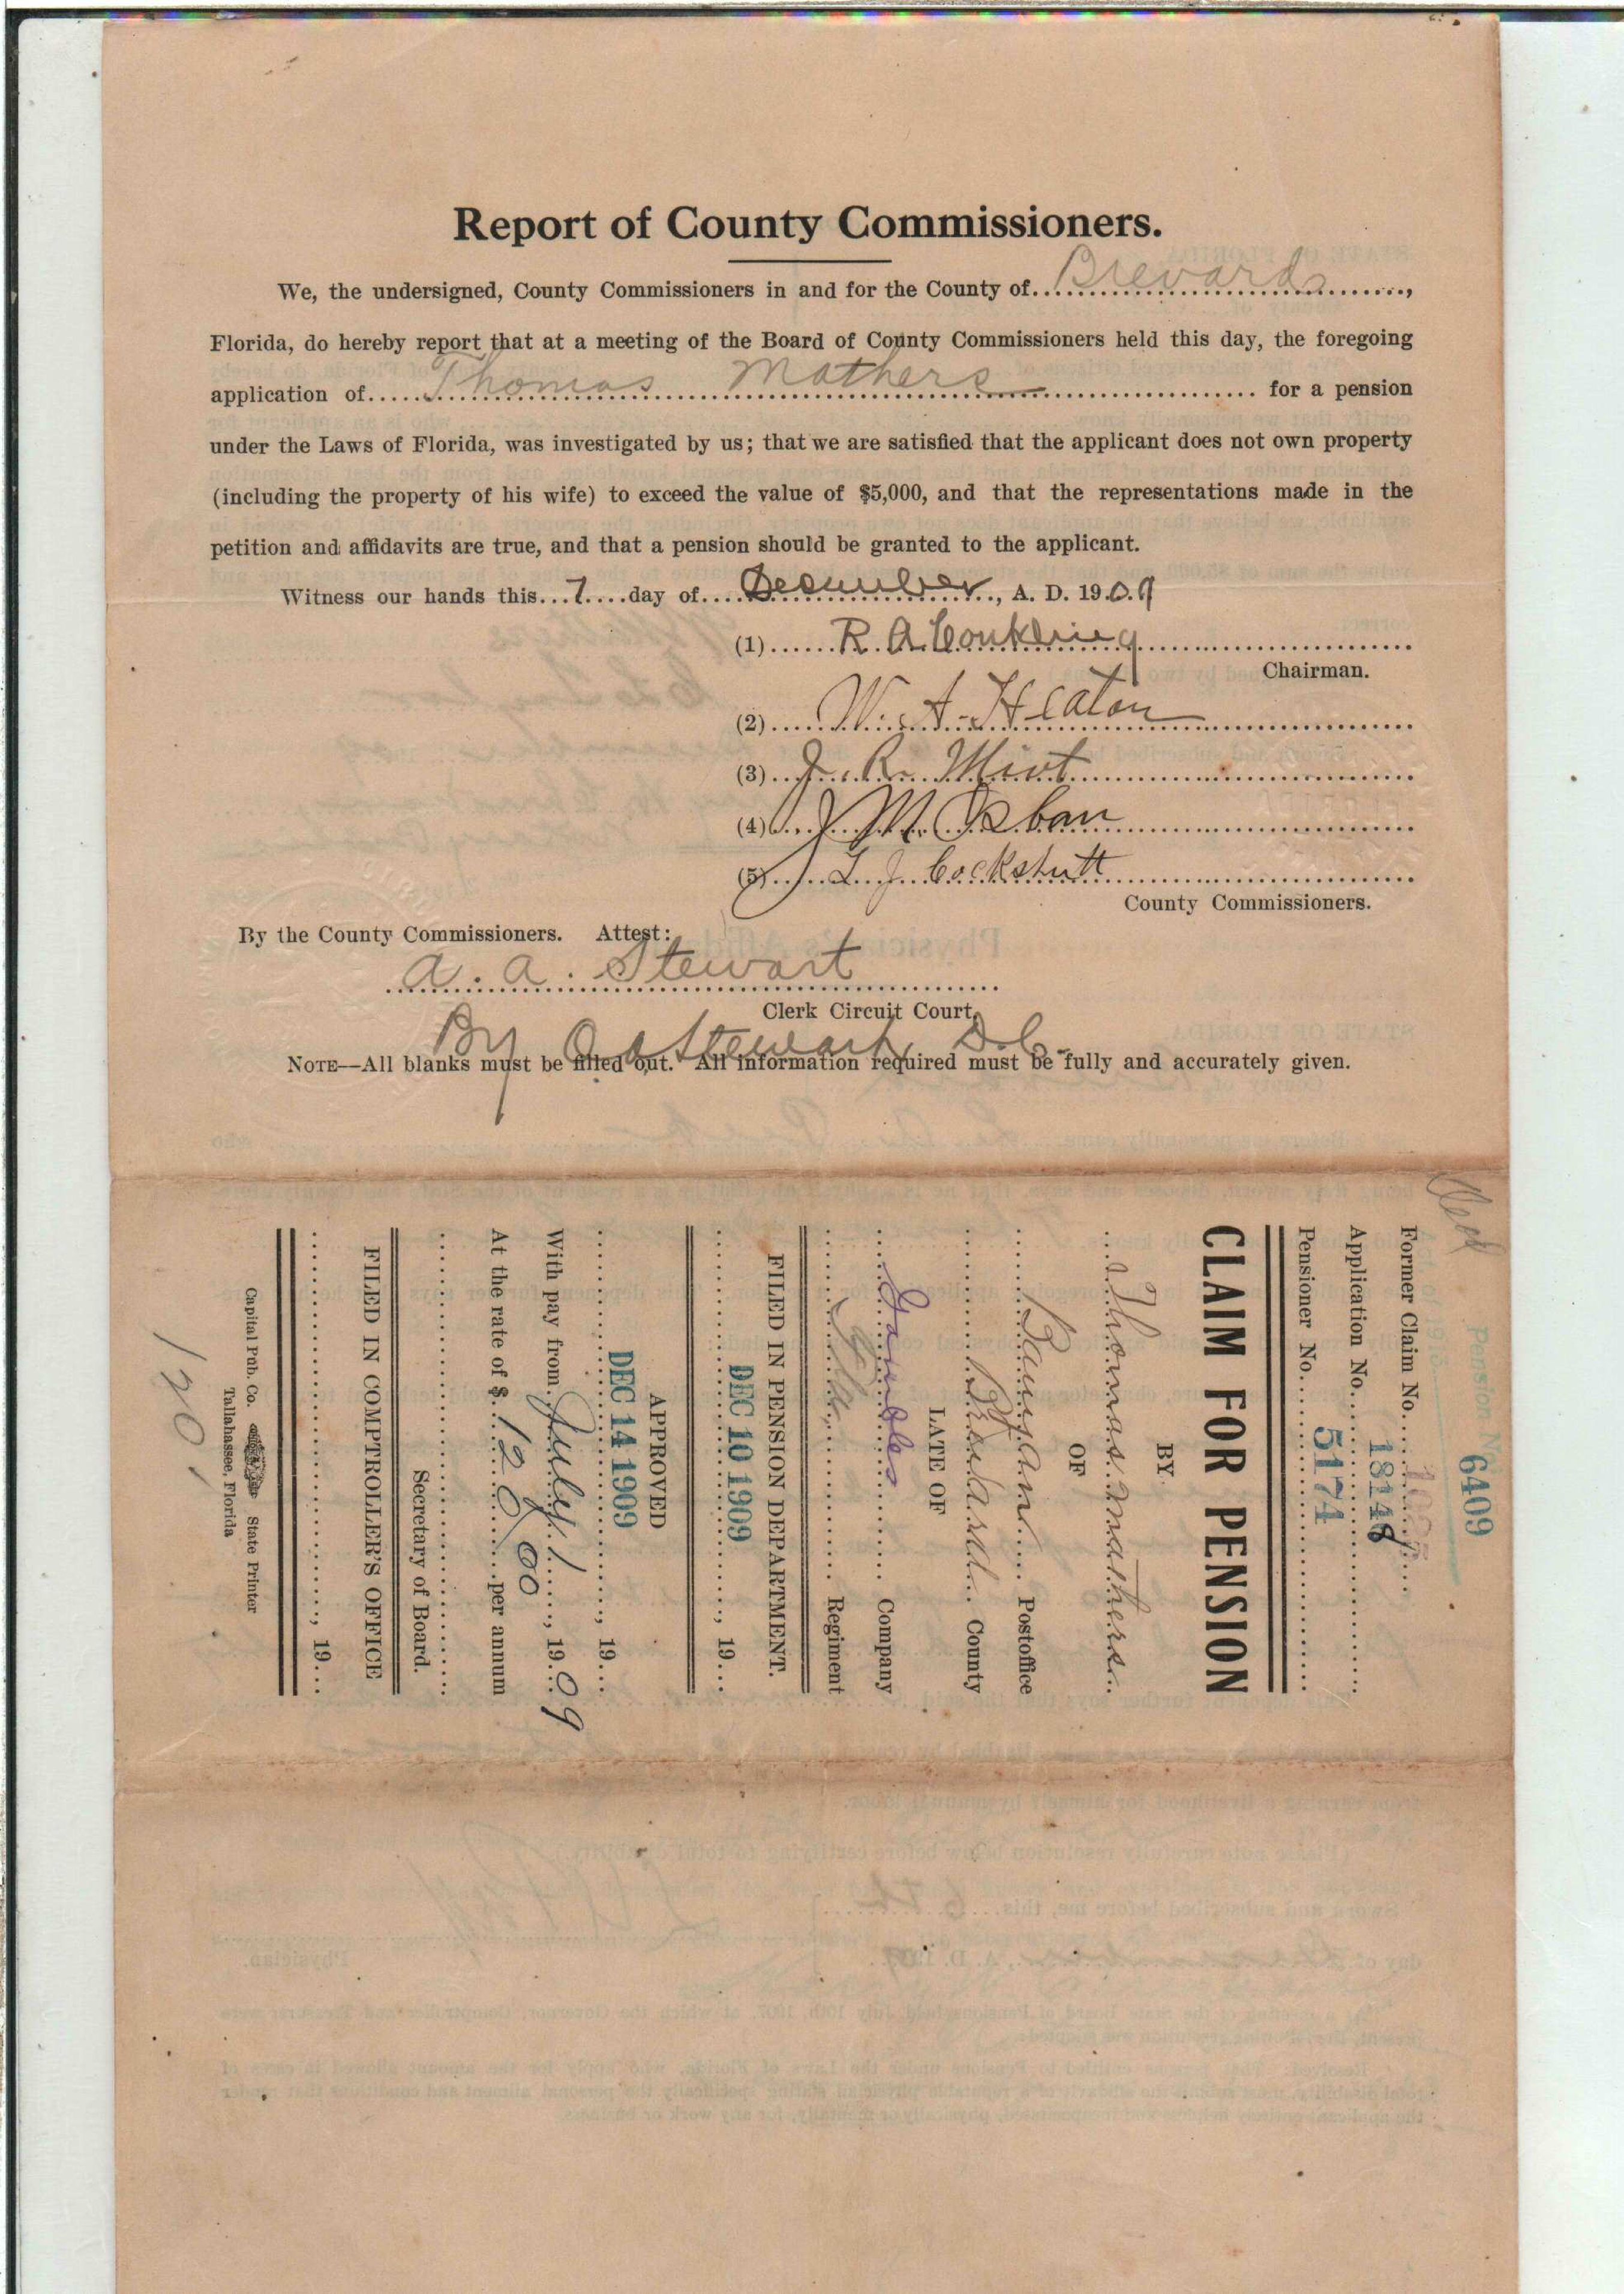 Report of County Commissioners.
We, the undersigned, County Commissioners in and for the County of Brevard,
Florida, do hereby report that at a meeting of the Board of County Commissioners held this day, the foregoing
application of Thomas Mathers for a pension
under the Laws of Florida, was investigated by us; that we are satisfied that the applicant does not own property
(including the property of his wife) to exceed the value of $5,000, and that the representations made in the
petition and affidavits are true, and that a pension should be granted to the applicant.
Witness our hands this 7 day of December, A. D. 1909
(1) R. A. Conkling
Chairman.
(2) W. A. Heaton
(3) J. R. Mi
(4) J. M. Osban
(5) L. J. Cockshutt
County Commissioners.
By the County Commissioners. Attest:
A. A. Stewart
Clerk Circuit Court,
By O A Stewart, D.C.
NOTE—All blanks must be filled out. All information required must be fully and accurately given.
Pension No. 6409
Former Claim No.
Application No. 18148
Pensioner No. 5174
CLAIM FOR PENSION
BY
Thomas Mathers
OF
Postoffice
Brevard County
LATE OF
Gambles Company
Regiment
FILED IN PENSION DEPARTMENT.
DEC 10 1909, 19
APPROVED
DEC 14 1909, 19
With pay from July 1, 1909
At the rate of $ 120/00 per annum
Secretary of Board.
FILED IN COMPTROLLER'S OFFICE
, 19
Capital Pub. Co. State Printer
Tallahassee, Florida
120,